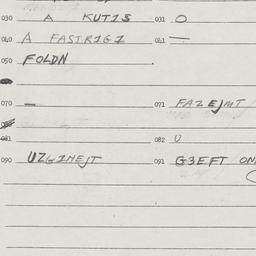 030 A KUTIS 031 O
040 A FASTRIGI 041 —
050 FOLDN
070 — 071 FAZEJMT
081 082 U
090 UZGINEJT 091 G3EFT ON